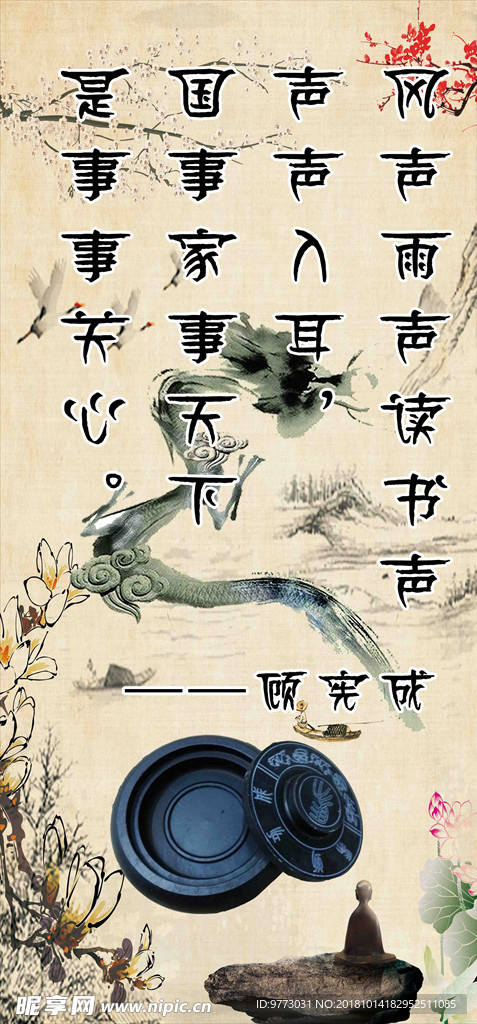 风声雨声读书声
声声入耳，
国事家事天下
是事事关心。
——顾宪成
昵享网 www.nipic.cn
ID:9773031 NO:20181014182952511085